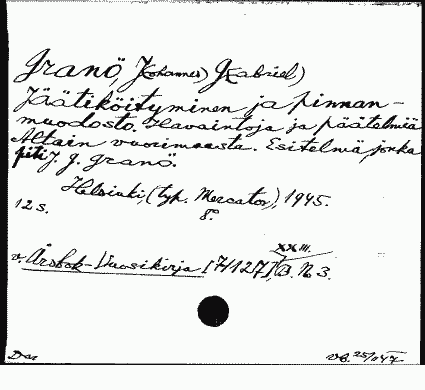 Granö, J(ohannes) G(abriel)
Jäätiköityminen ja pinnan-
muodosto. Havaintoja ja päätelmiä
Altain vuorimaasta. Esitelmä, jonka
piti J. G. Granö.
Helsinki, (typ. Mercator), 1945.
12 s. 8°.
XXIII.
v. Årsbok-Vuosikirja [H127] B. N 3.